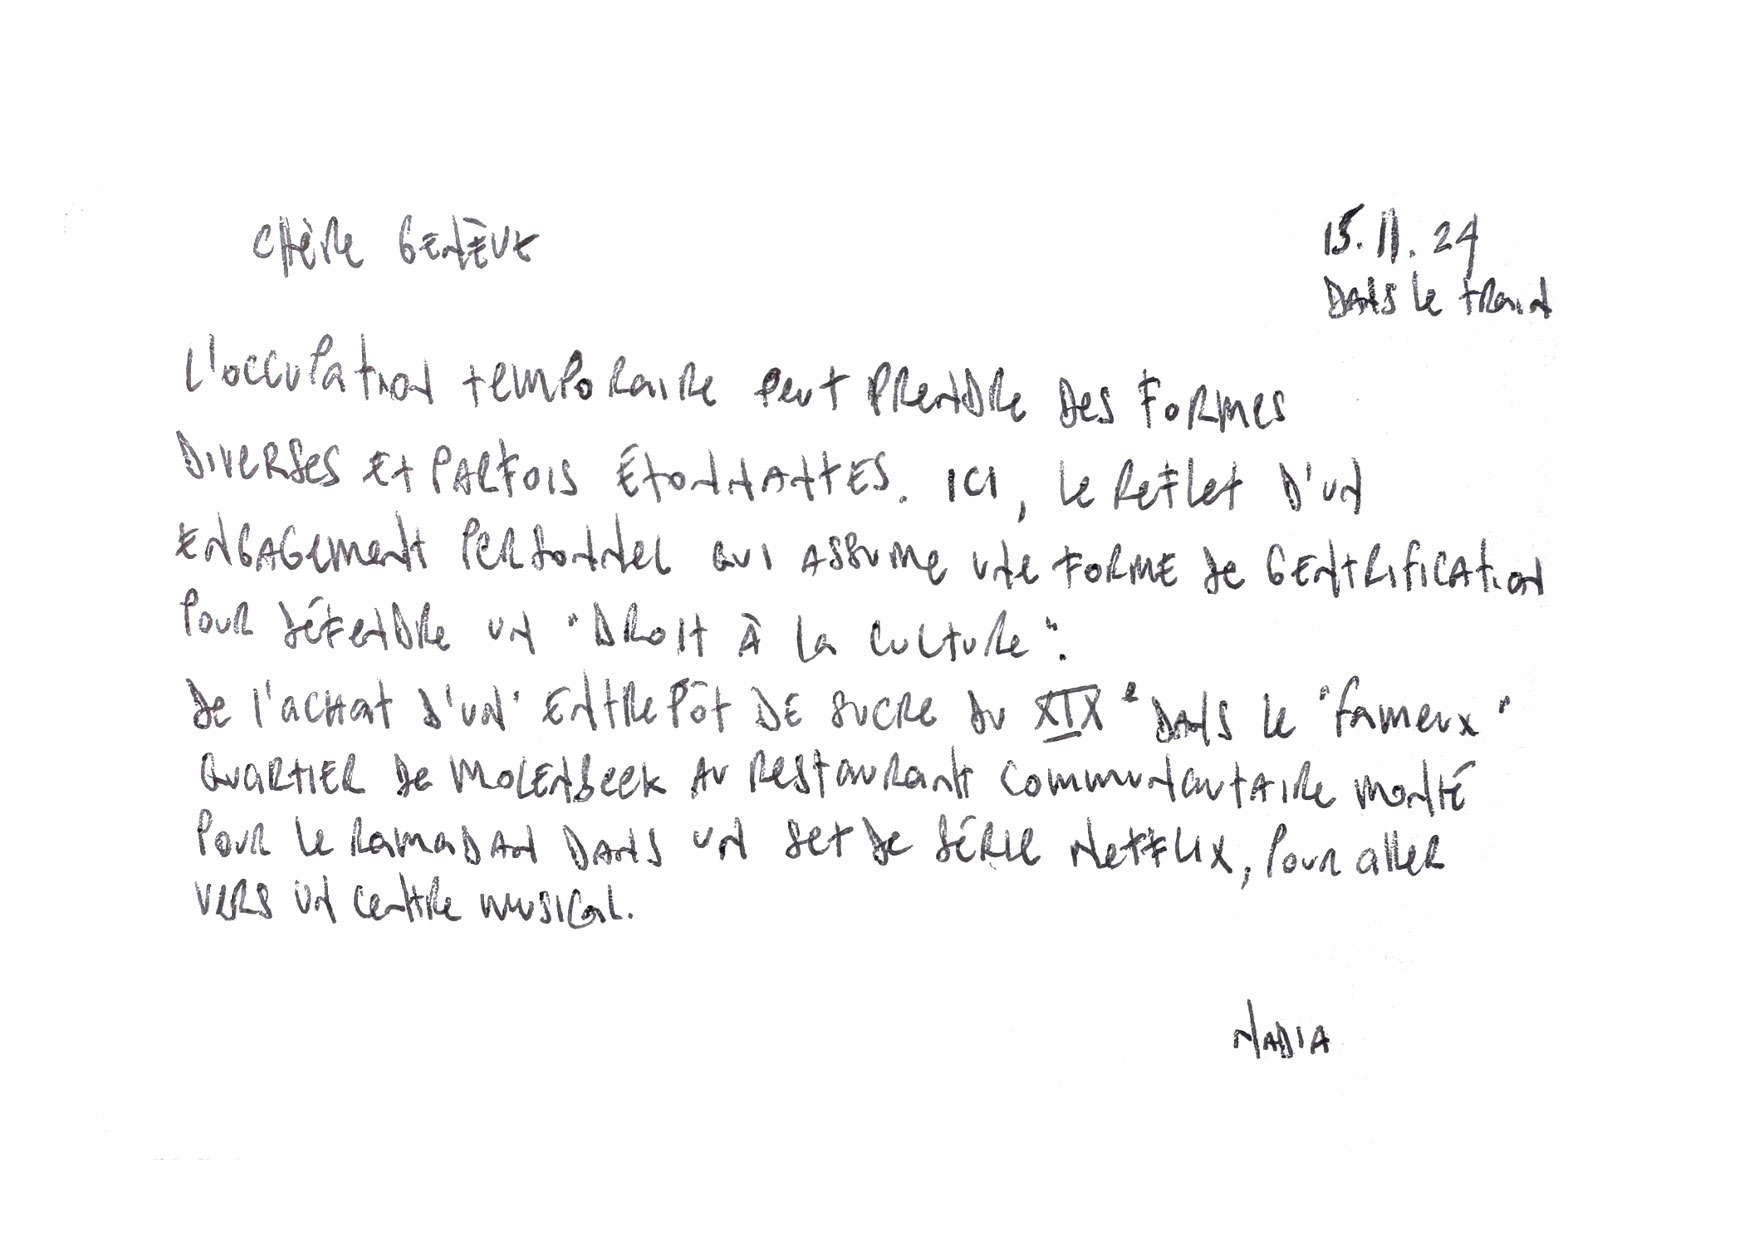 Chère Genève
15.11.24
Dans le train
L'occupation temporaire peut prendre des formes
diverses et parfois étonnantes. Ici, le reflet d'un
engagement personnel qui assume une forme de gentrification
pour défendre un "droit à la culture".
De l'achat d'un entrepôt de sucre du XIXe dans le "fameux"
quartier de Molenbeek au restaurant communautaire monté
pour le Ramadan dans un set de série Netflix, pour aller
vers un centre musical.
Nadia